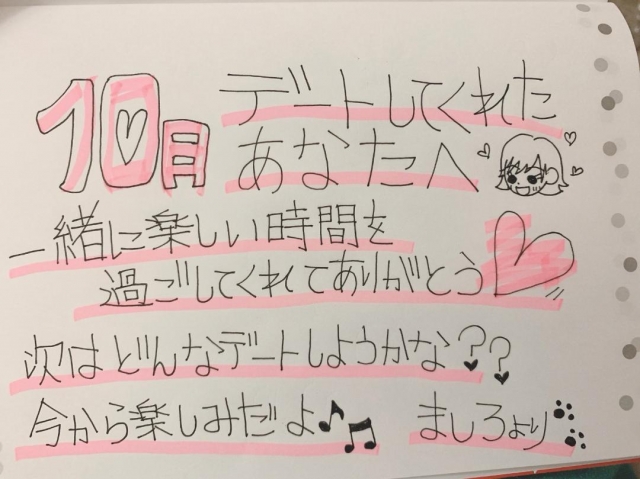 10月 デートしてくれた
あなたへ
一緒に楽しい時間を
過ごしてくれてありがとう
次はどんなデートしようかな??
今から楽しみだよ♪♫ ましろより